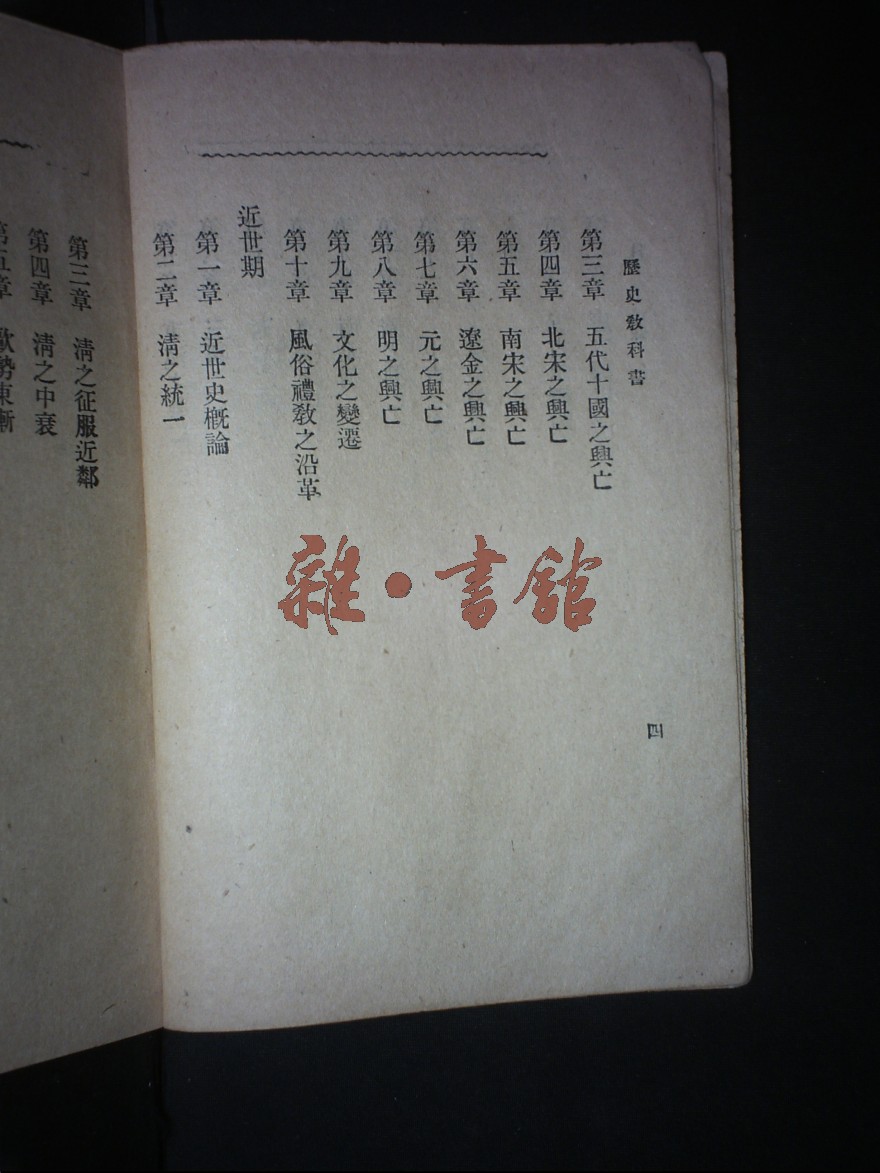 歷史教科書
第三章 五代十國之興亡
第四章 北宋之興亡
第五章 南宋之興亡
第六章 遼金之興亡
第七章 元之興亡
第八章 明之興亡
第九章 文化之變遷
第十章 風俗禮教之沿革
近世期
第一章 近世史概論
第二章 清之統一
四
第三章 清之征服近鄰
第四章 清之中衰
第五章 歐勢東漸
雜·書館